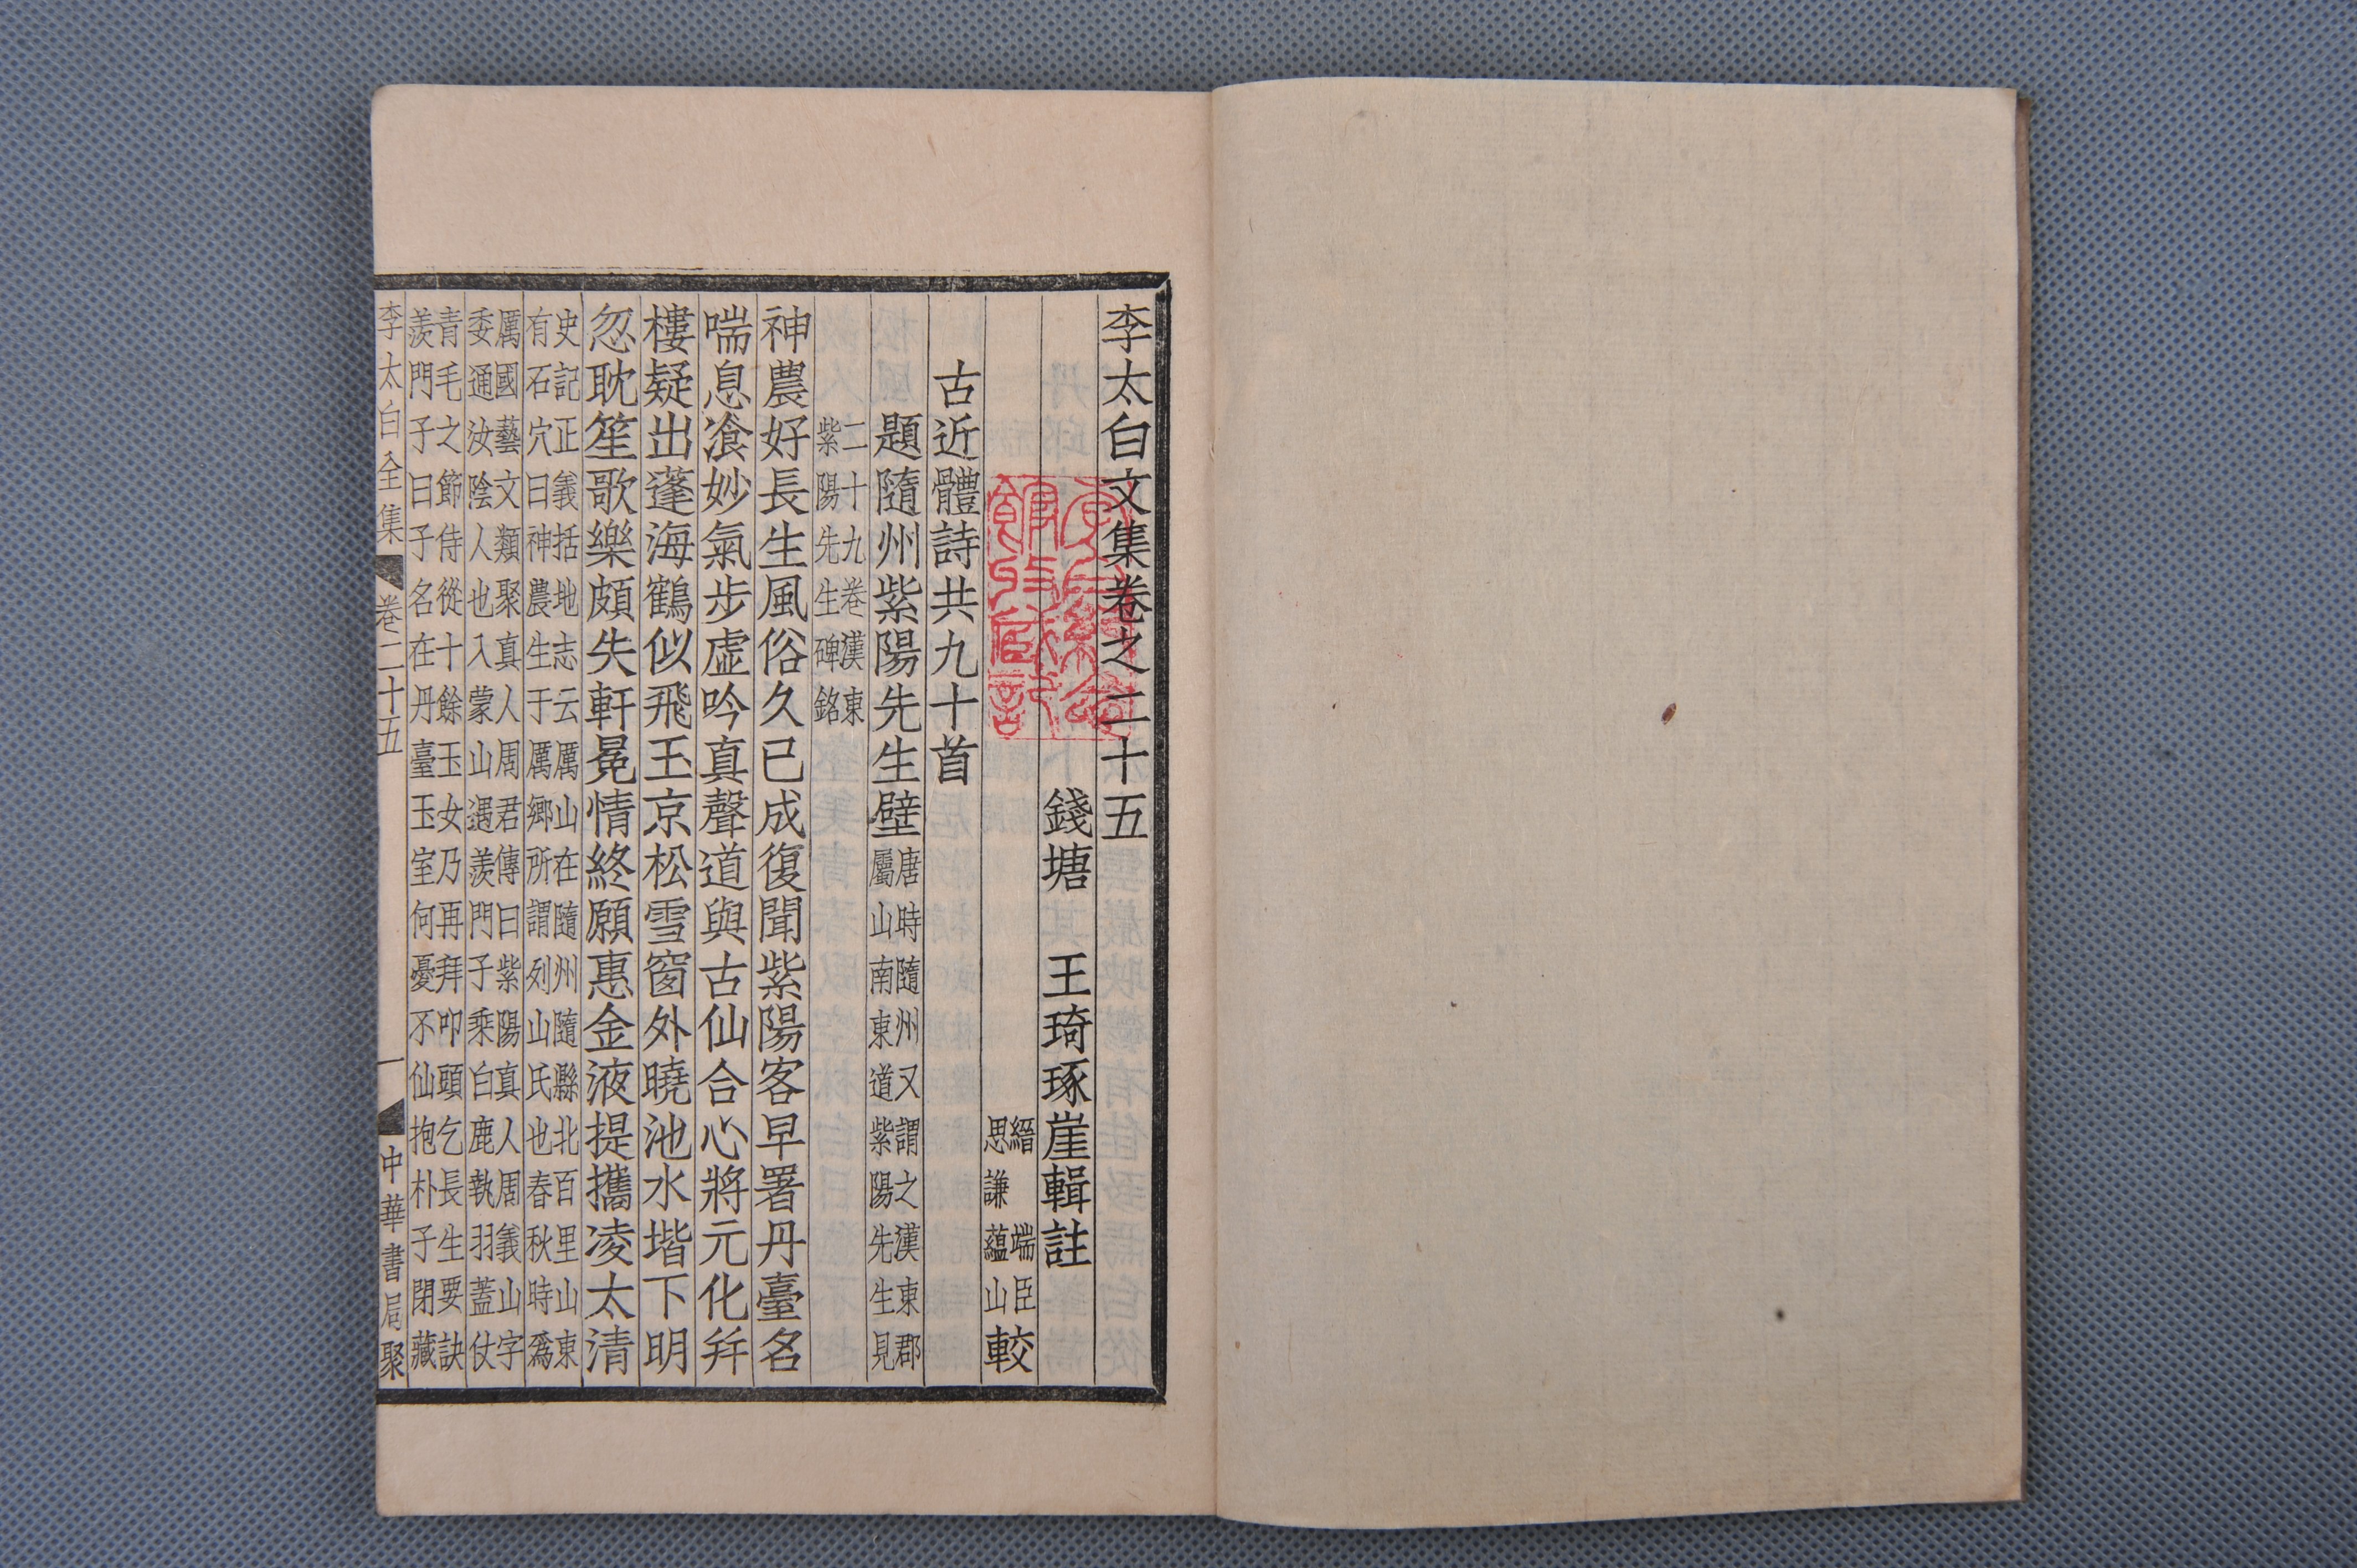 李太白文集卷之二十五
錢塘 王琦琢崖輯註
縉 端臣
思謙蘊山
較
古近體詩共九十首
題隨州紫陽先生壁
唐時隨州又謂之漢東郡
屬山南東道紫陽先生見
二十九卷漢東
紫陽先生碑銘
神農好長生風俗久已成復聞紫陽客早署丹臺名
喘息飡妙氣步虛吟真聲道與古仙合心將元化幷
樓疑出蓬海鶴似飛玉京松雪窗外曉池水堦下明
忽耽笙歌樂頗失軒冕情終願惠金液提攜凌太清
史記正義括地志云厲山在隨州隨縣北百里山東
有石穴曰神農生于厲鄉所謂列山氏也春秋時爲
厲國藝文類聚真人周君傳曰紫陽真人周義山字
委通汝陰人也入蒙山遇羨門子乘白鹿執羽蓋仗
青毛之節侍從十餘玉女乃再拜叩頭乞長生要訣
羨門子曰子名在丹臺玉室何憂不仙抱朴子閉藏
李太白全集 卷二十五 一 中華書局聚